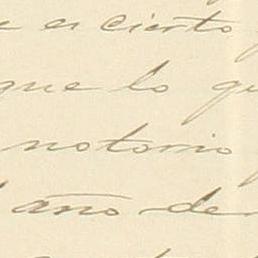 e es cierto
que lo qu
notorio
año de